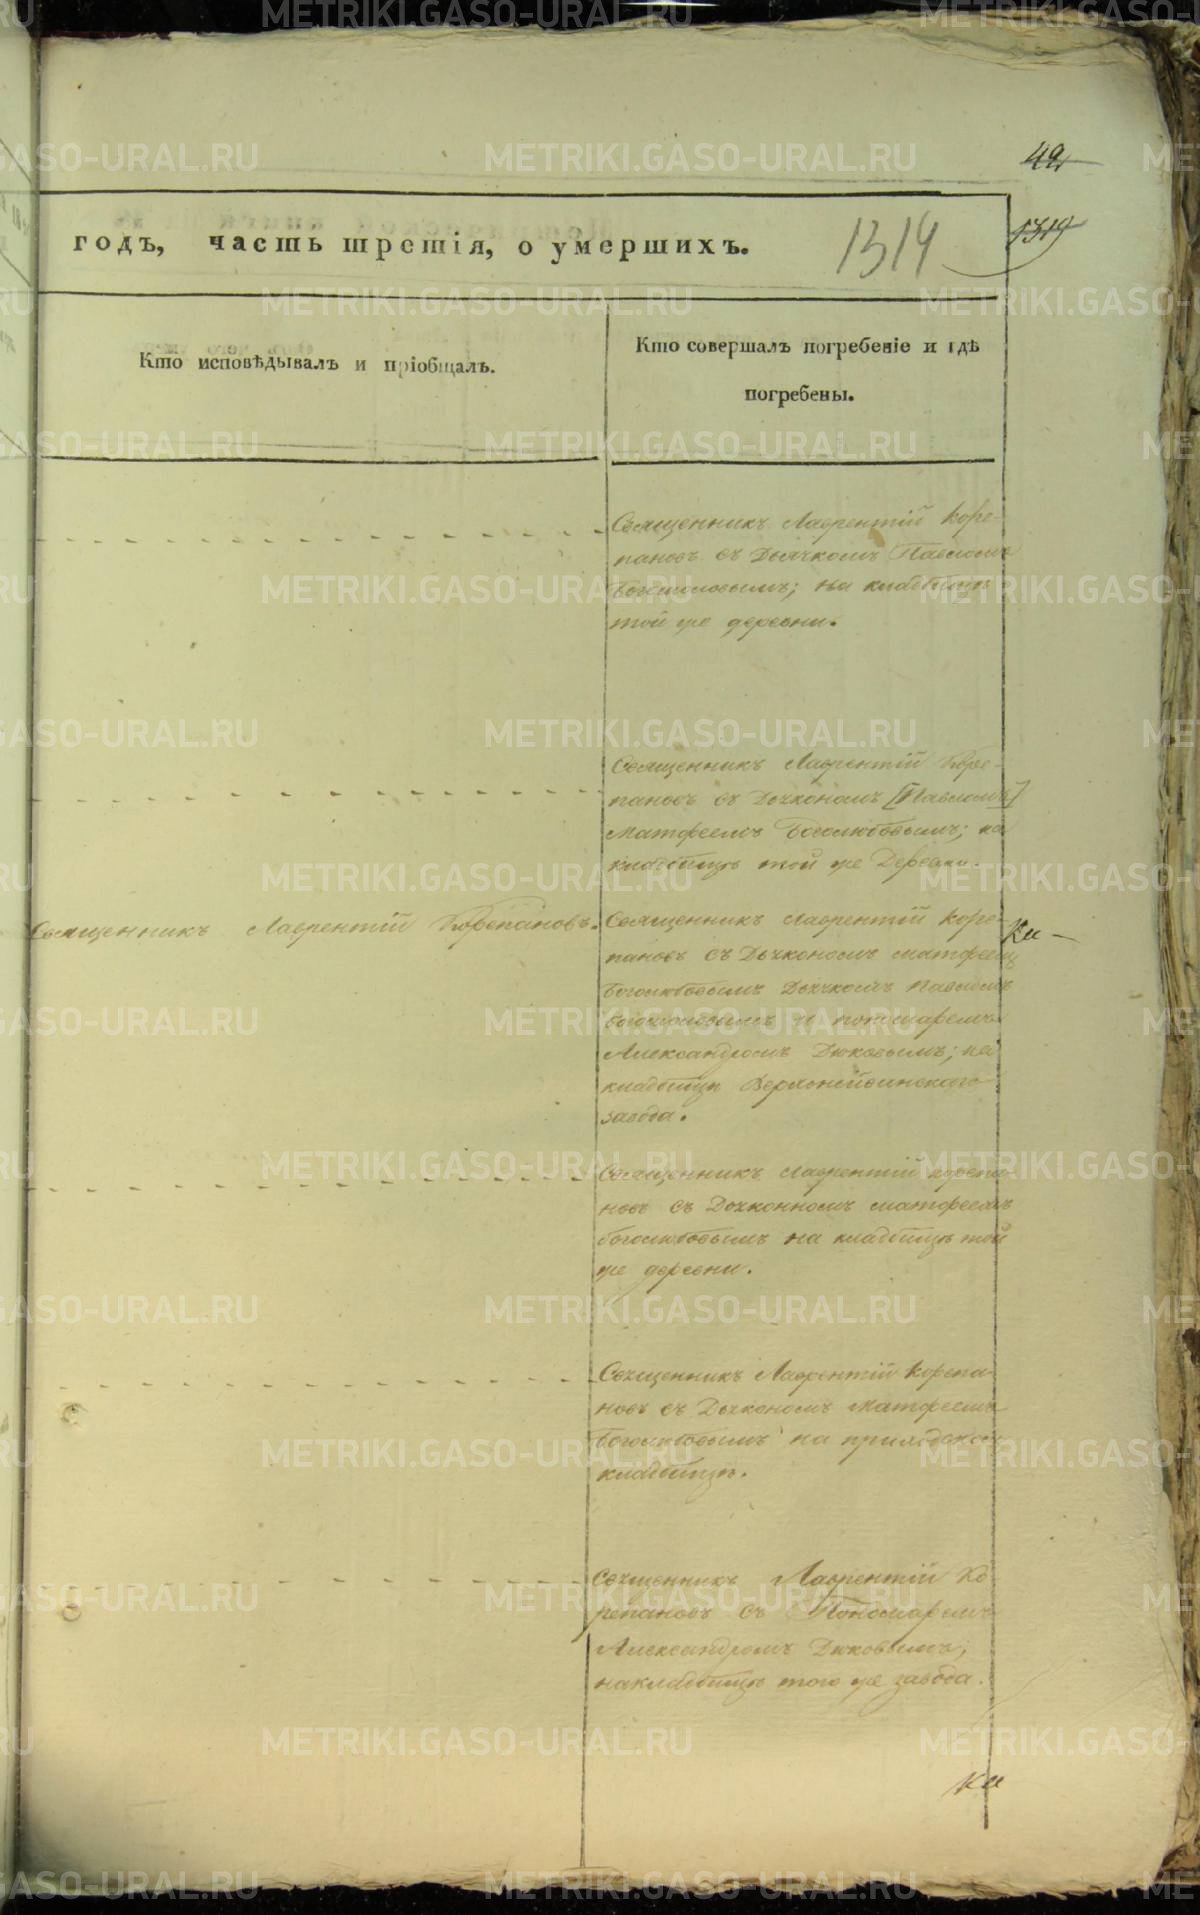 49
1319
годъ, часть третія, о умершихъ. 1314
Кто исповѣдывалъ и пріобщалъ.
Кто совершалъ погребеніе и гдѣ
погребены.
Священникъ Лаврентій Коре-
пановъ съ Дьячкомъ Павломъ
Боголюбовымъ; на кладбищѣ
той же деревни.
Священникъ Лаврентій Коре-
пановъ съ Дьякономъ [Павломъ]
Матфеемъ Боголюбовымъ; на
кладбищѣ той же Деревни.
Священникъ Лаврентій Корепановъ.
Священникъ Лаврентій Коре-
пановъ съ Дьякономъ Матфеемъ
Боголюбовымъ Дьячкомъ Павломъ
Боголюбовымъ и пономаремъ
Александромъ Дюковымъ; на
кладбищѣ Верхнейвинскаго
завода.
Священникъ Лаврентій Корепа-
новъ съ Дьякономъ Матфеемъ
Боголюбовымъ на кладбищѣ той
же деревни.
Священникъ Лаврентій Корепа-
новъ съ Дьякономъ Матфеемъ
Боголюбовымъ на приходскомъ
кладбищѣ.
Священникъ Лаврентій Ко-
репановъ съ Пономаремъ
Александромъ Дюковымъ;
на кладбищѣ того же завода.
METRIKI.GASO-URAL.RU